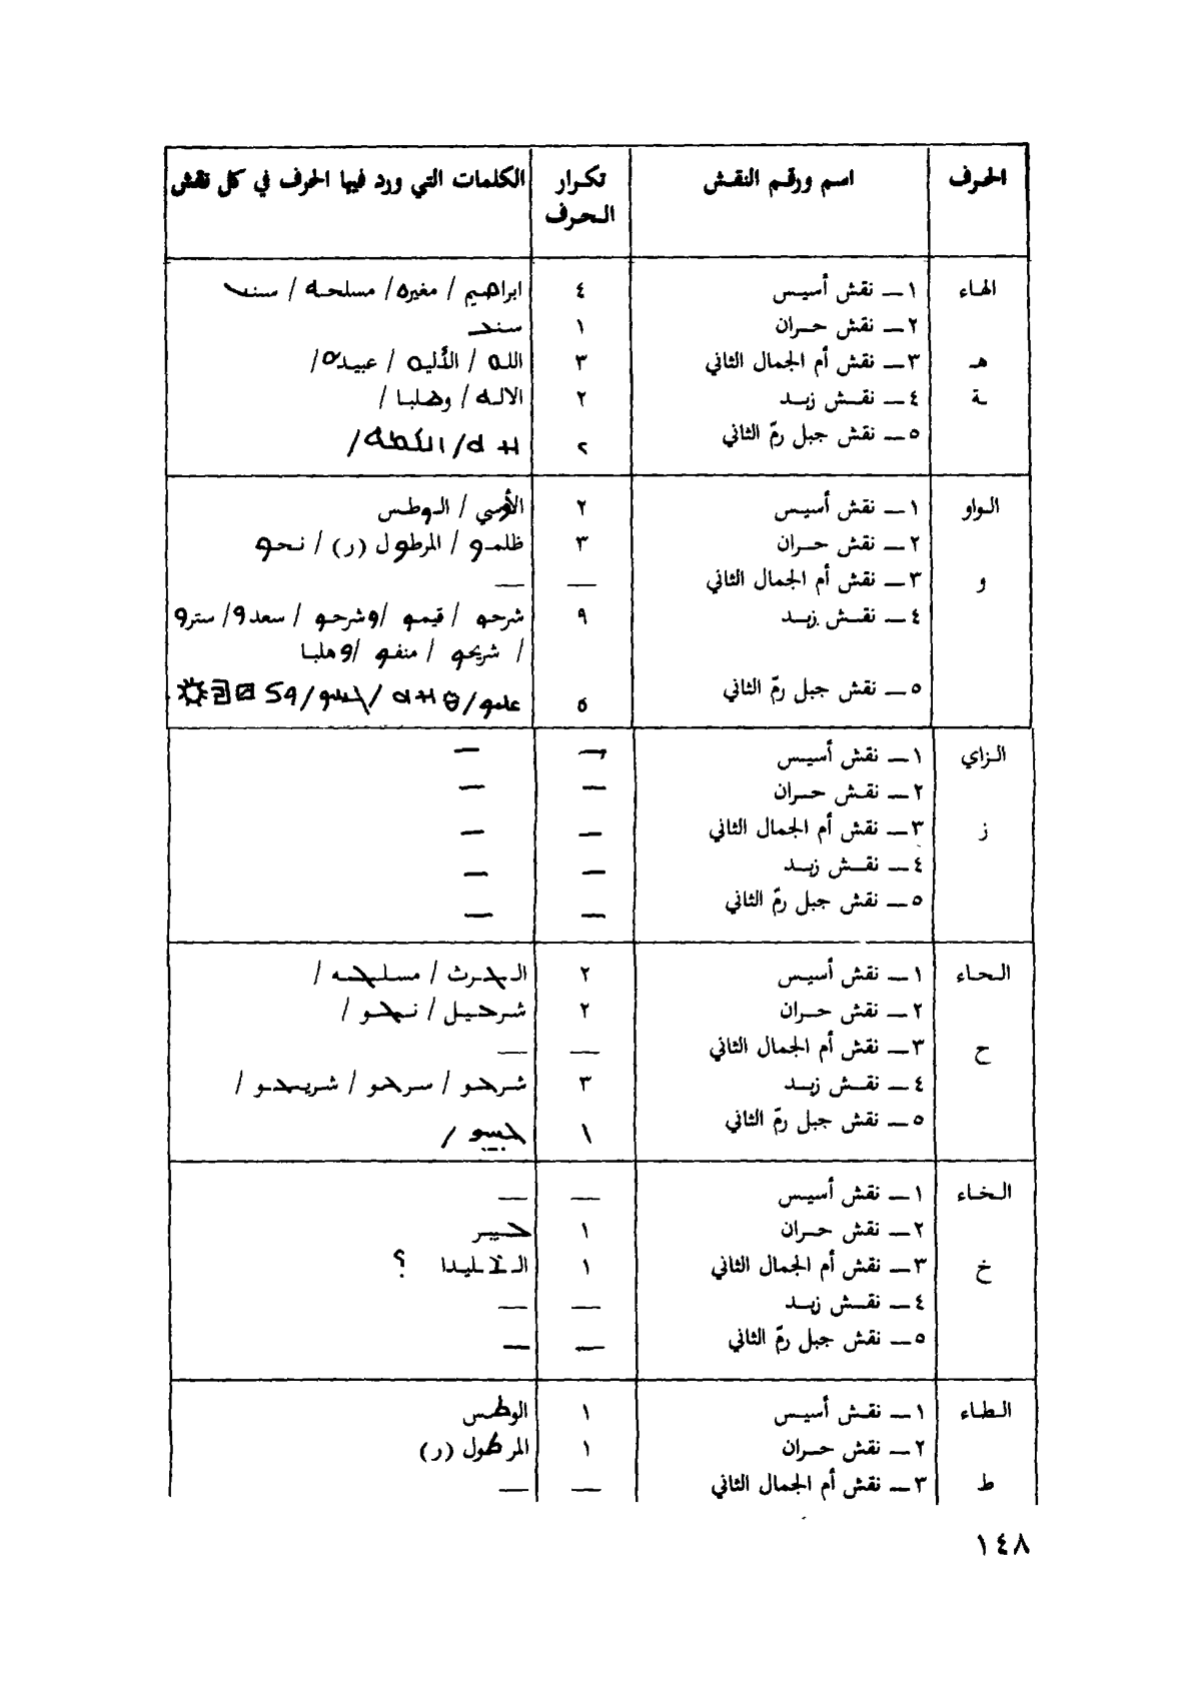 الحرف اسم ورقم النقش تكرار الحرف الكلمات التي ورد فيها الحرف في كل نقش
الهاء ١ــ نقش أسيس ٤ ابراهيم / مغيره / مسلحه / سنه
٢ــ نقش حران ١ سنه
هـ ٣ــ نقش أم الجمال الثاني ٣ الله / الأليه / عبيده /
ـة ٤ــ نقش زبد ٢ الاله / وهلبا /
٥ــ نقش جبل رمّ الثاني ٢
الواو ١ــ نقش أسيس ٢ الأوسي / الوطس
٢ــ نقش حران ٣ ظلمو / المرطول (ر) / نحو
و ٣ــ نقش أم الجمال الثاني — —
٤ــ نقش زبد ٩ شرحو / قيمو / وشرحو / سعدو / سترو
/ شريحو / منفو / وهلبا
٥ــ نقش جبل رمّ الثاني ٥ عليو /
الزاي ١ــ نقش أسيس — —
٢ــ نقش حران — —
ز ٣ــ نقش أم الجمال الثاني — —
٤ــ نقش زبد — —
٥ــ نقش جبل رمّ الثاني — —
الحاء ١ــ نقش أسيس ٢ الحرث / مسلحه /
٢ــ نقش حران ٢ شرحيل / نحو /
ح ٣ــ نقش أم الجمال الثاني — —
٤ــ نقش زبد ٣ شرحو / سرحو / شريحو /
٥ــ نقش جبل رمّ الثاني ١
الخاء ١ــ نقش أسيس — —
٢ــ نقش حران ١ خيبر
خ ٣ــ نقش أم الجمال الثاني ١ ؟
٤ــ نقش زبد — —
٥ــ نقش جبل رمّ الثاني — —
الطاء ١ــ نقش أسيس ١ الوطس
٢ــ نقش حران ١ المرطول (ر)
ط ٣ــ نقش أم الجمال الثاني — —
١٤٨